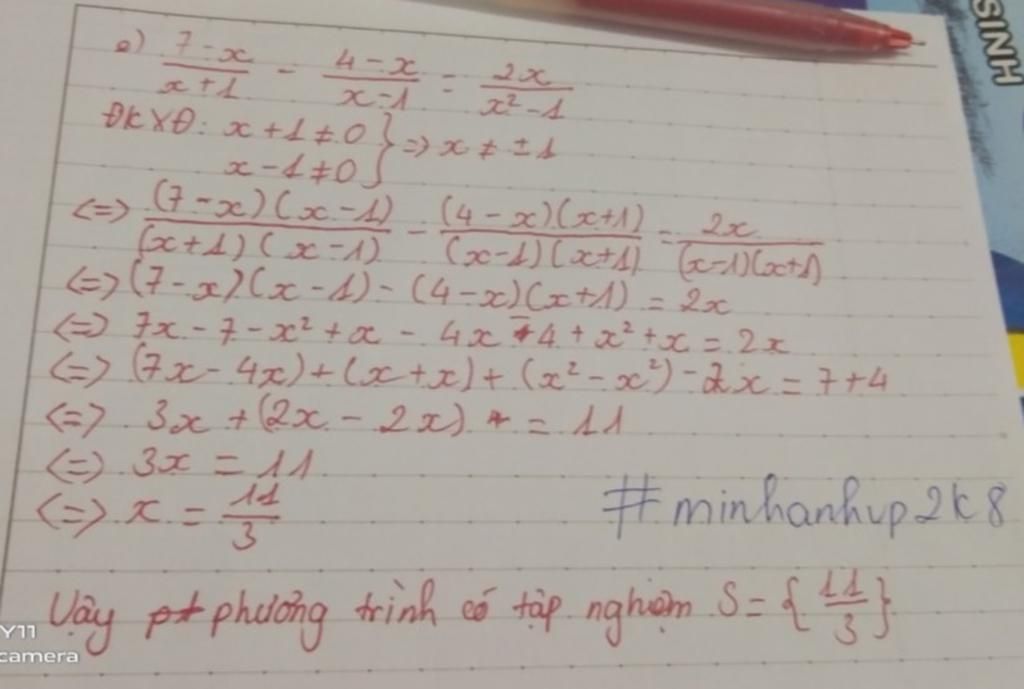 e) \frac{7-x}{x+1} - \frac{4-x}{x-1} - \frac{2x}{x²-1}
ĐKXĐ: x+1≠0 } => x ≠ ±1
x-1≠0
<=> \frac{(7-x)(x-1)}{(x+1)(x-1)} - \frac{(4-x)(x+1)}{(x-1)(x+1)} = \frac{2x}{(x-1)(x+1)}
<=> (7-x)(x-1) - (4-x)(x+1) = 2x
<=> 7x - 7 - x² + x - 4x - 4 + x² + x = 2x
<=> (7x - 4x) + (x + x) + (x² - x²) - 2x = 7+4
<=> 3x + (2x - 2x) = 11
<=> 3x = 11
<=> x = \frac{11}{3}
#minhanhvp2k8
Vậy phương trình có tập nghiệm S = {\frac{11}{3}}
Y11
camera
SINH